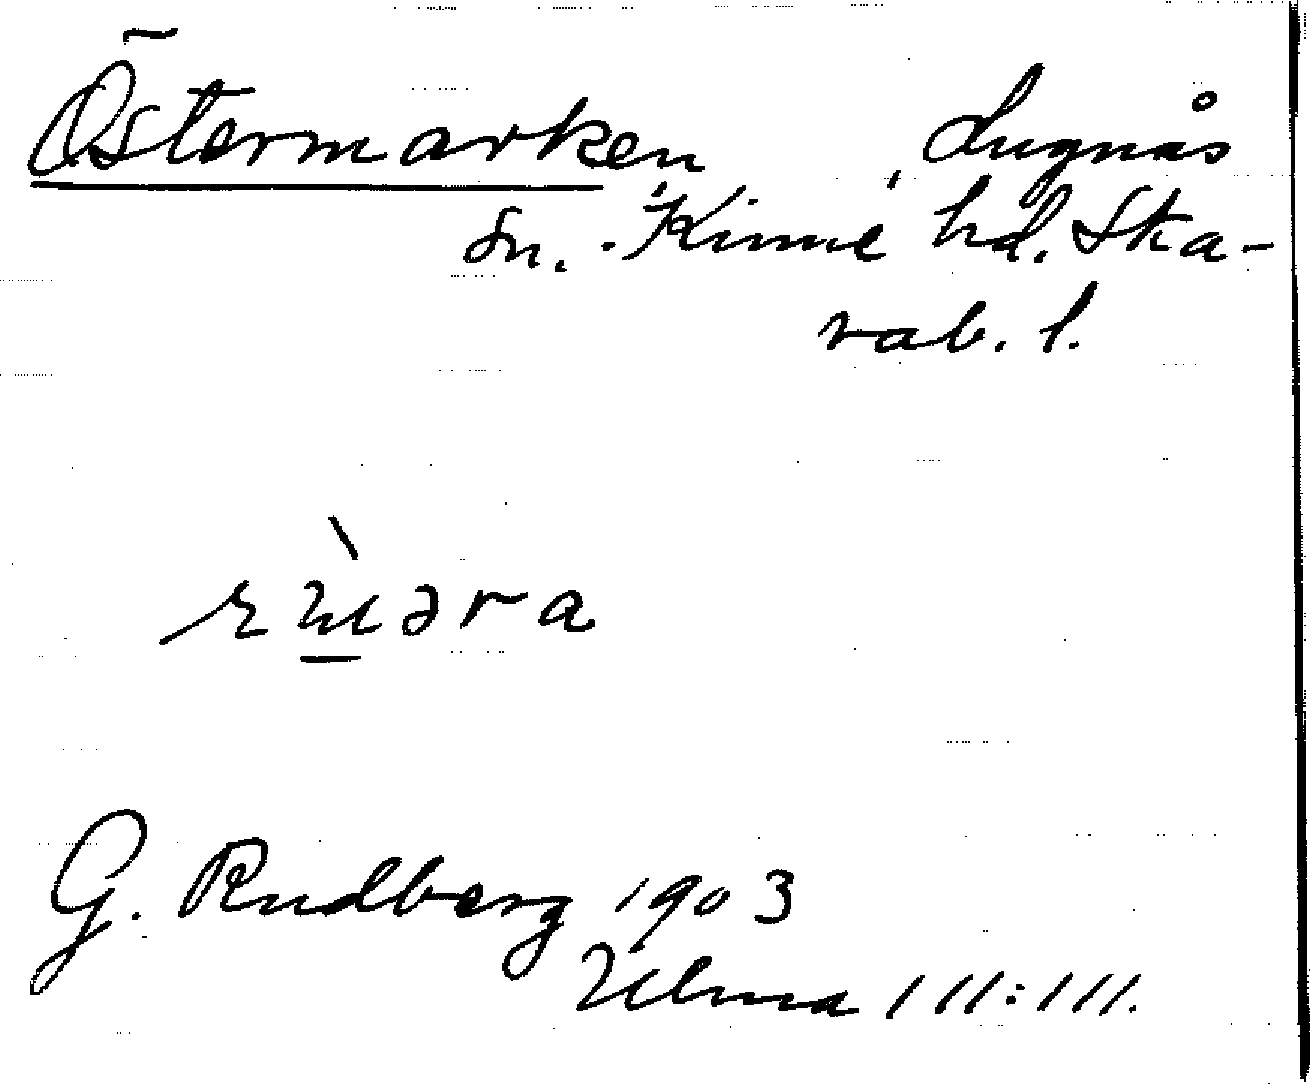 Östermarken, Lugnås
sn. Kinne hd. Ska-
rab. l.
G. Rudberg 1903
Ulma 111:111.